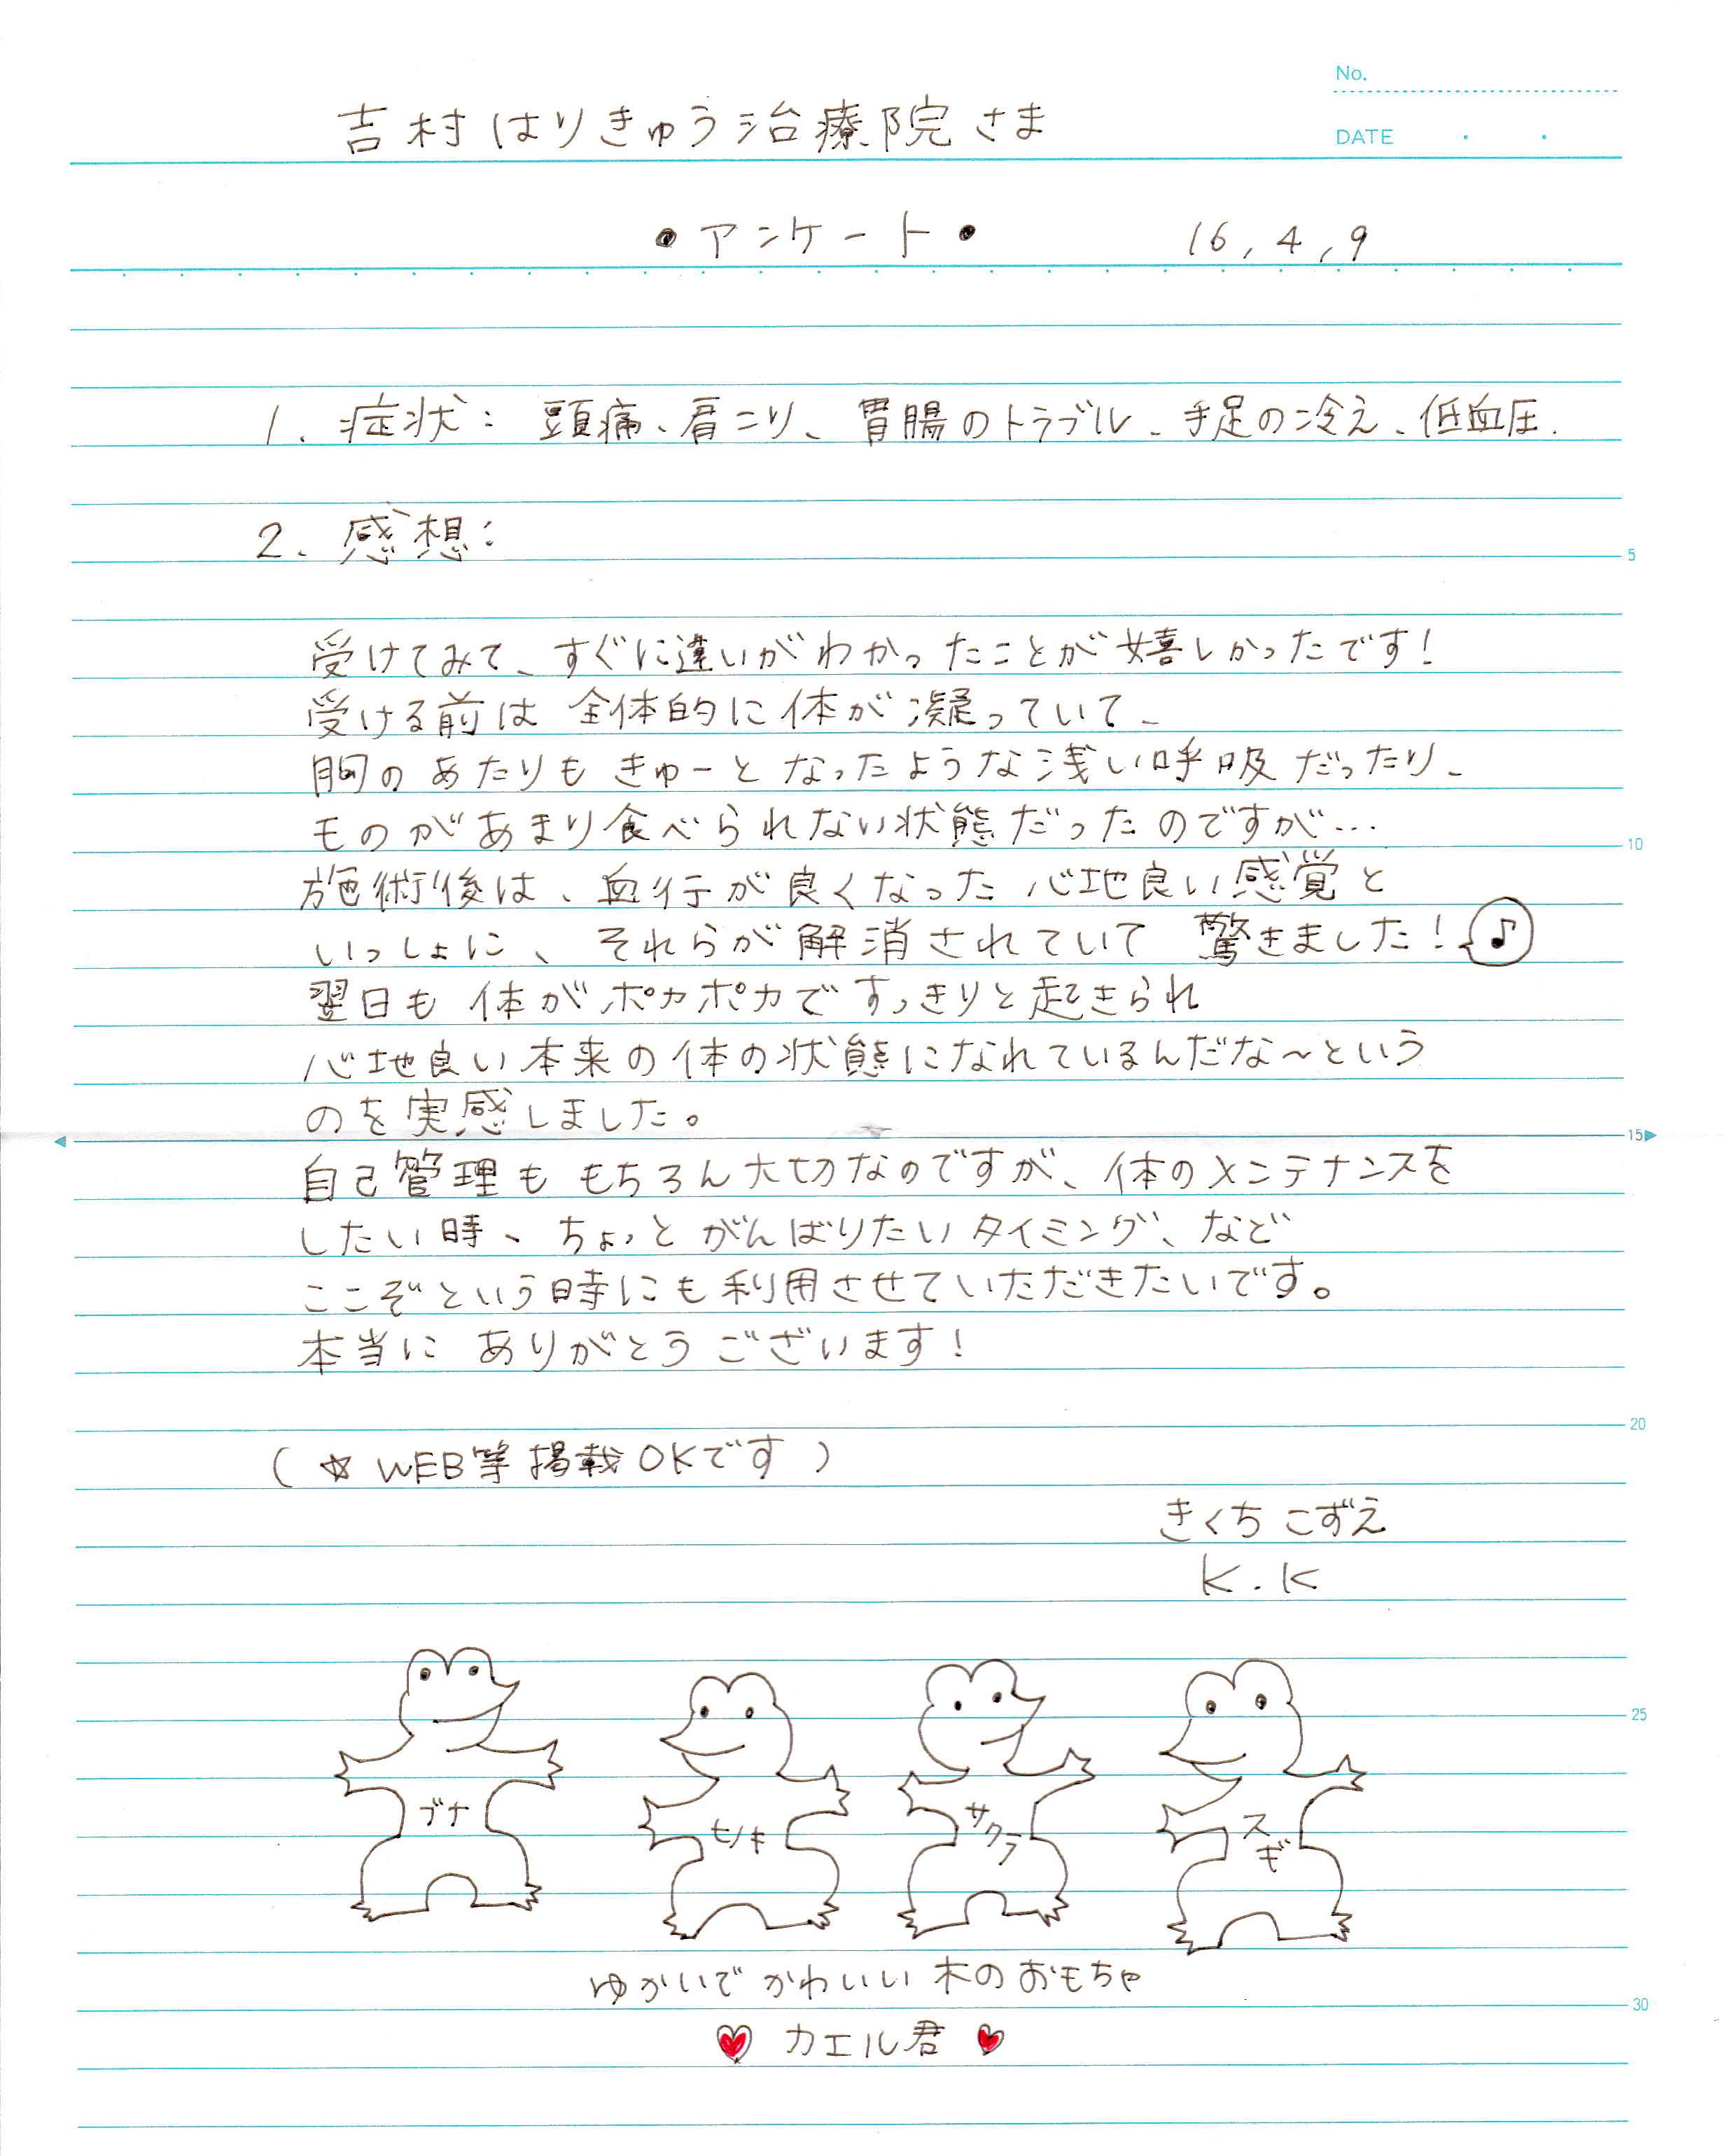 No.
吉村はりきゅう治療院さま
DATE
・アンケート・ 16,4,9
1. 症状: 頭痛、肩こり、胃腸のトラブル、手足の冷え、低血圧.
2. 感想:
5
受けてみて、すぐに違いがわかったことが嬉しかったです!
受ける前は 全体的に体が凝っていて、
胸のあたりもきゅーとなったような浅い呼吸だったり、
ものがあまり食べられない状態だったのですが…
10
施術後は、血行が良くなった心地良い感覚と
いっしょに、それらが解消されていて 驚きました! ♪
翌日も 体がポカポカですっきりと起きられ
心地良い本来の体の状態になれているんだな~という
のを実感しました。
15
自己管理ももちろん大切なのですが、体のメンテナンスを
したい時、ちょっとがんばりたいタイミング、など
ここぞという時にも利用させていただきたいです。
本当に ありがとうございます!
20
(☆WEB等掲載OKです)
きくち こずえ
K.K
25
ブナ ヒノキ サクラ スギ
ゆかいで かわいい 木のおもちゃ
30
♥ カエル君 ♥